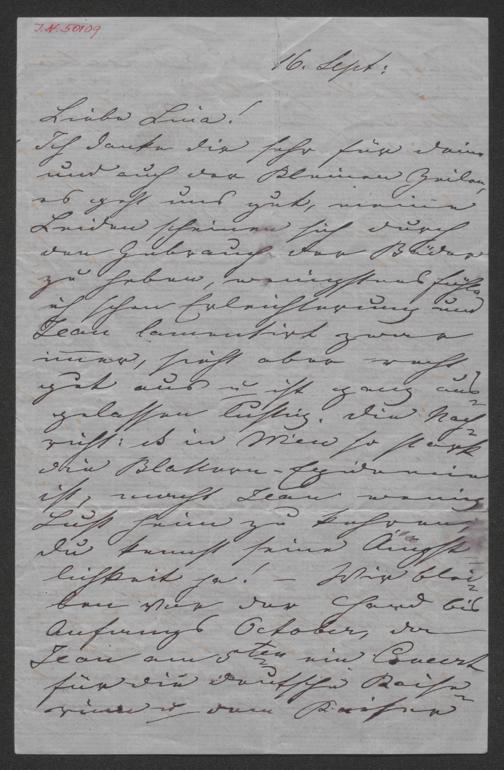 J.N. 50109
16. Sept:
Liebe Lina!
Ich danke dir sehr für deine
und auch der Kleinen Zeilen,
es geht uns gut, meine
Leiden scheinen sich durch
den Gebrauch der Bäder
zu heben, wenigstens fühle
ich schon Erleichterung und
Jean lamentirt zwar
immer, sieht aber recht
gut aus u ist ganz aus-
gelassen lustig. Die Nach-
richt: es in Wien so stark
die Blattern-Epidemie
ist, macht Jean wenig
Lust heim zu kehren
du kennst seine Ängst-
lichkeit ja! – Wir blei-
ben vor der Hand bis
Anfangs October, da
Jean am 5ten ein Concert
für die deutsche Kaise-
rin u dem Kaiser